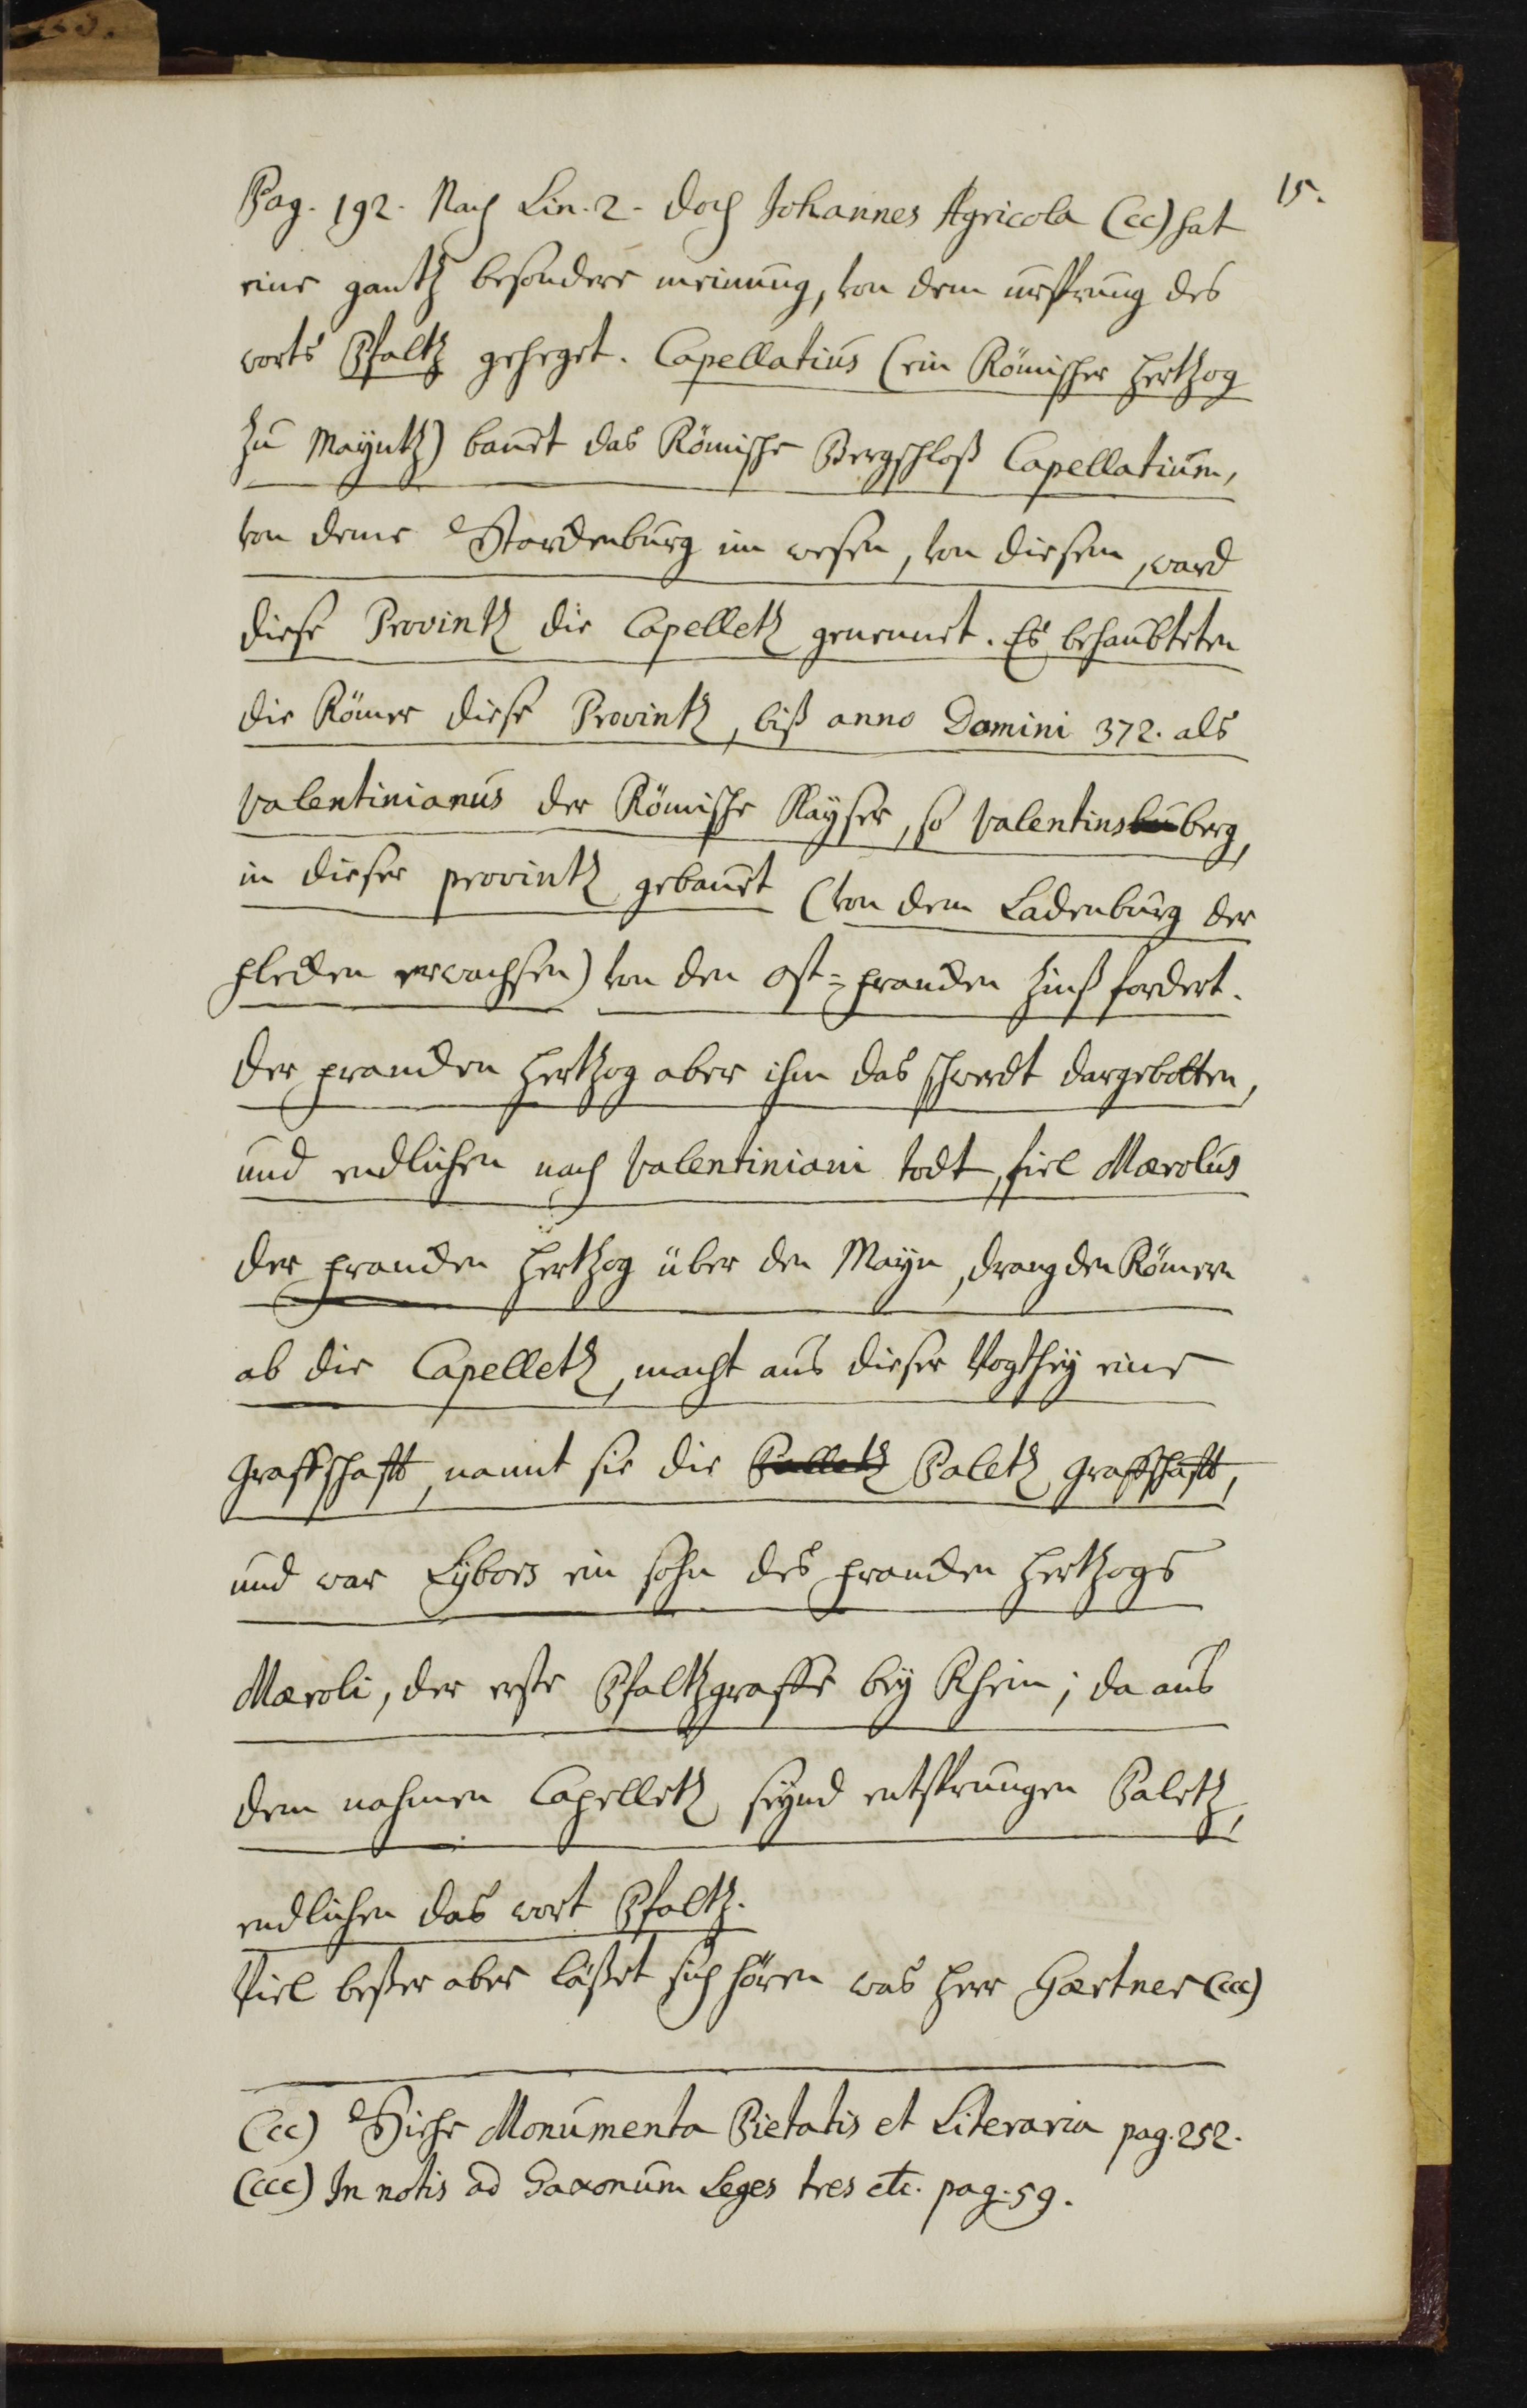 15.
Pag. 192. Nach Lin. 2. doch Johannes Agricola (cc) hat
eine gantz besondere meinung, von dem ursprung des
worts Pfaltz geheget. Capellatius (ein Römischer Hertzog
zu Mayntz) bauet das Römische Bergschloß Capellatium,
von deme Starckenburg im wesen, von diesem, ward
diese Provintz die Capelletz genennet. Es behaubteten
die Römer diese Provintz, biß anno Domini 372. als
Valentinianus der Römische Kayser, so Valentinsberg,
in dieser provintz gebauet (von dem Ladenburg der
flecken erwachsen) von den Ost-francken Zinß fordert.
der francken Hertzog aber ihm das schwerdt dargebotten,
und endlichen nach Valentiniani todt, fiel Mærolus
der francken Hertzog über den Mayn, drang den Römern
ab die Capelletz, macht aus dieser Vogthey eine
Graffschafft, nannt sie die Palletz Paletz Graffschafft,
und war Lybors ein sohn des francken Hertzogs
Mæroli, der erste Pfaltzgraffe bey Rhein; da aus
dem nahmen Capelletz seynd entsprungen Paletz,
endlichen das wort Pfaltz.
Viel beßer aber läßet sich hören was Herr Gærtner (ccc)
(cc) Siehe Monumenta Pietatis et Literaria pag. 252.
(ccc) In notis ad Saxonum Leges tres etc. pag. 59.